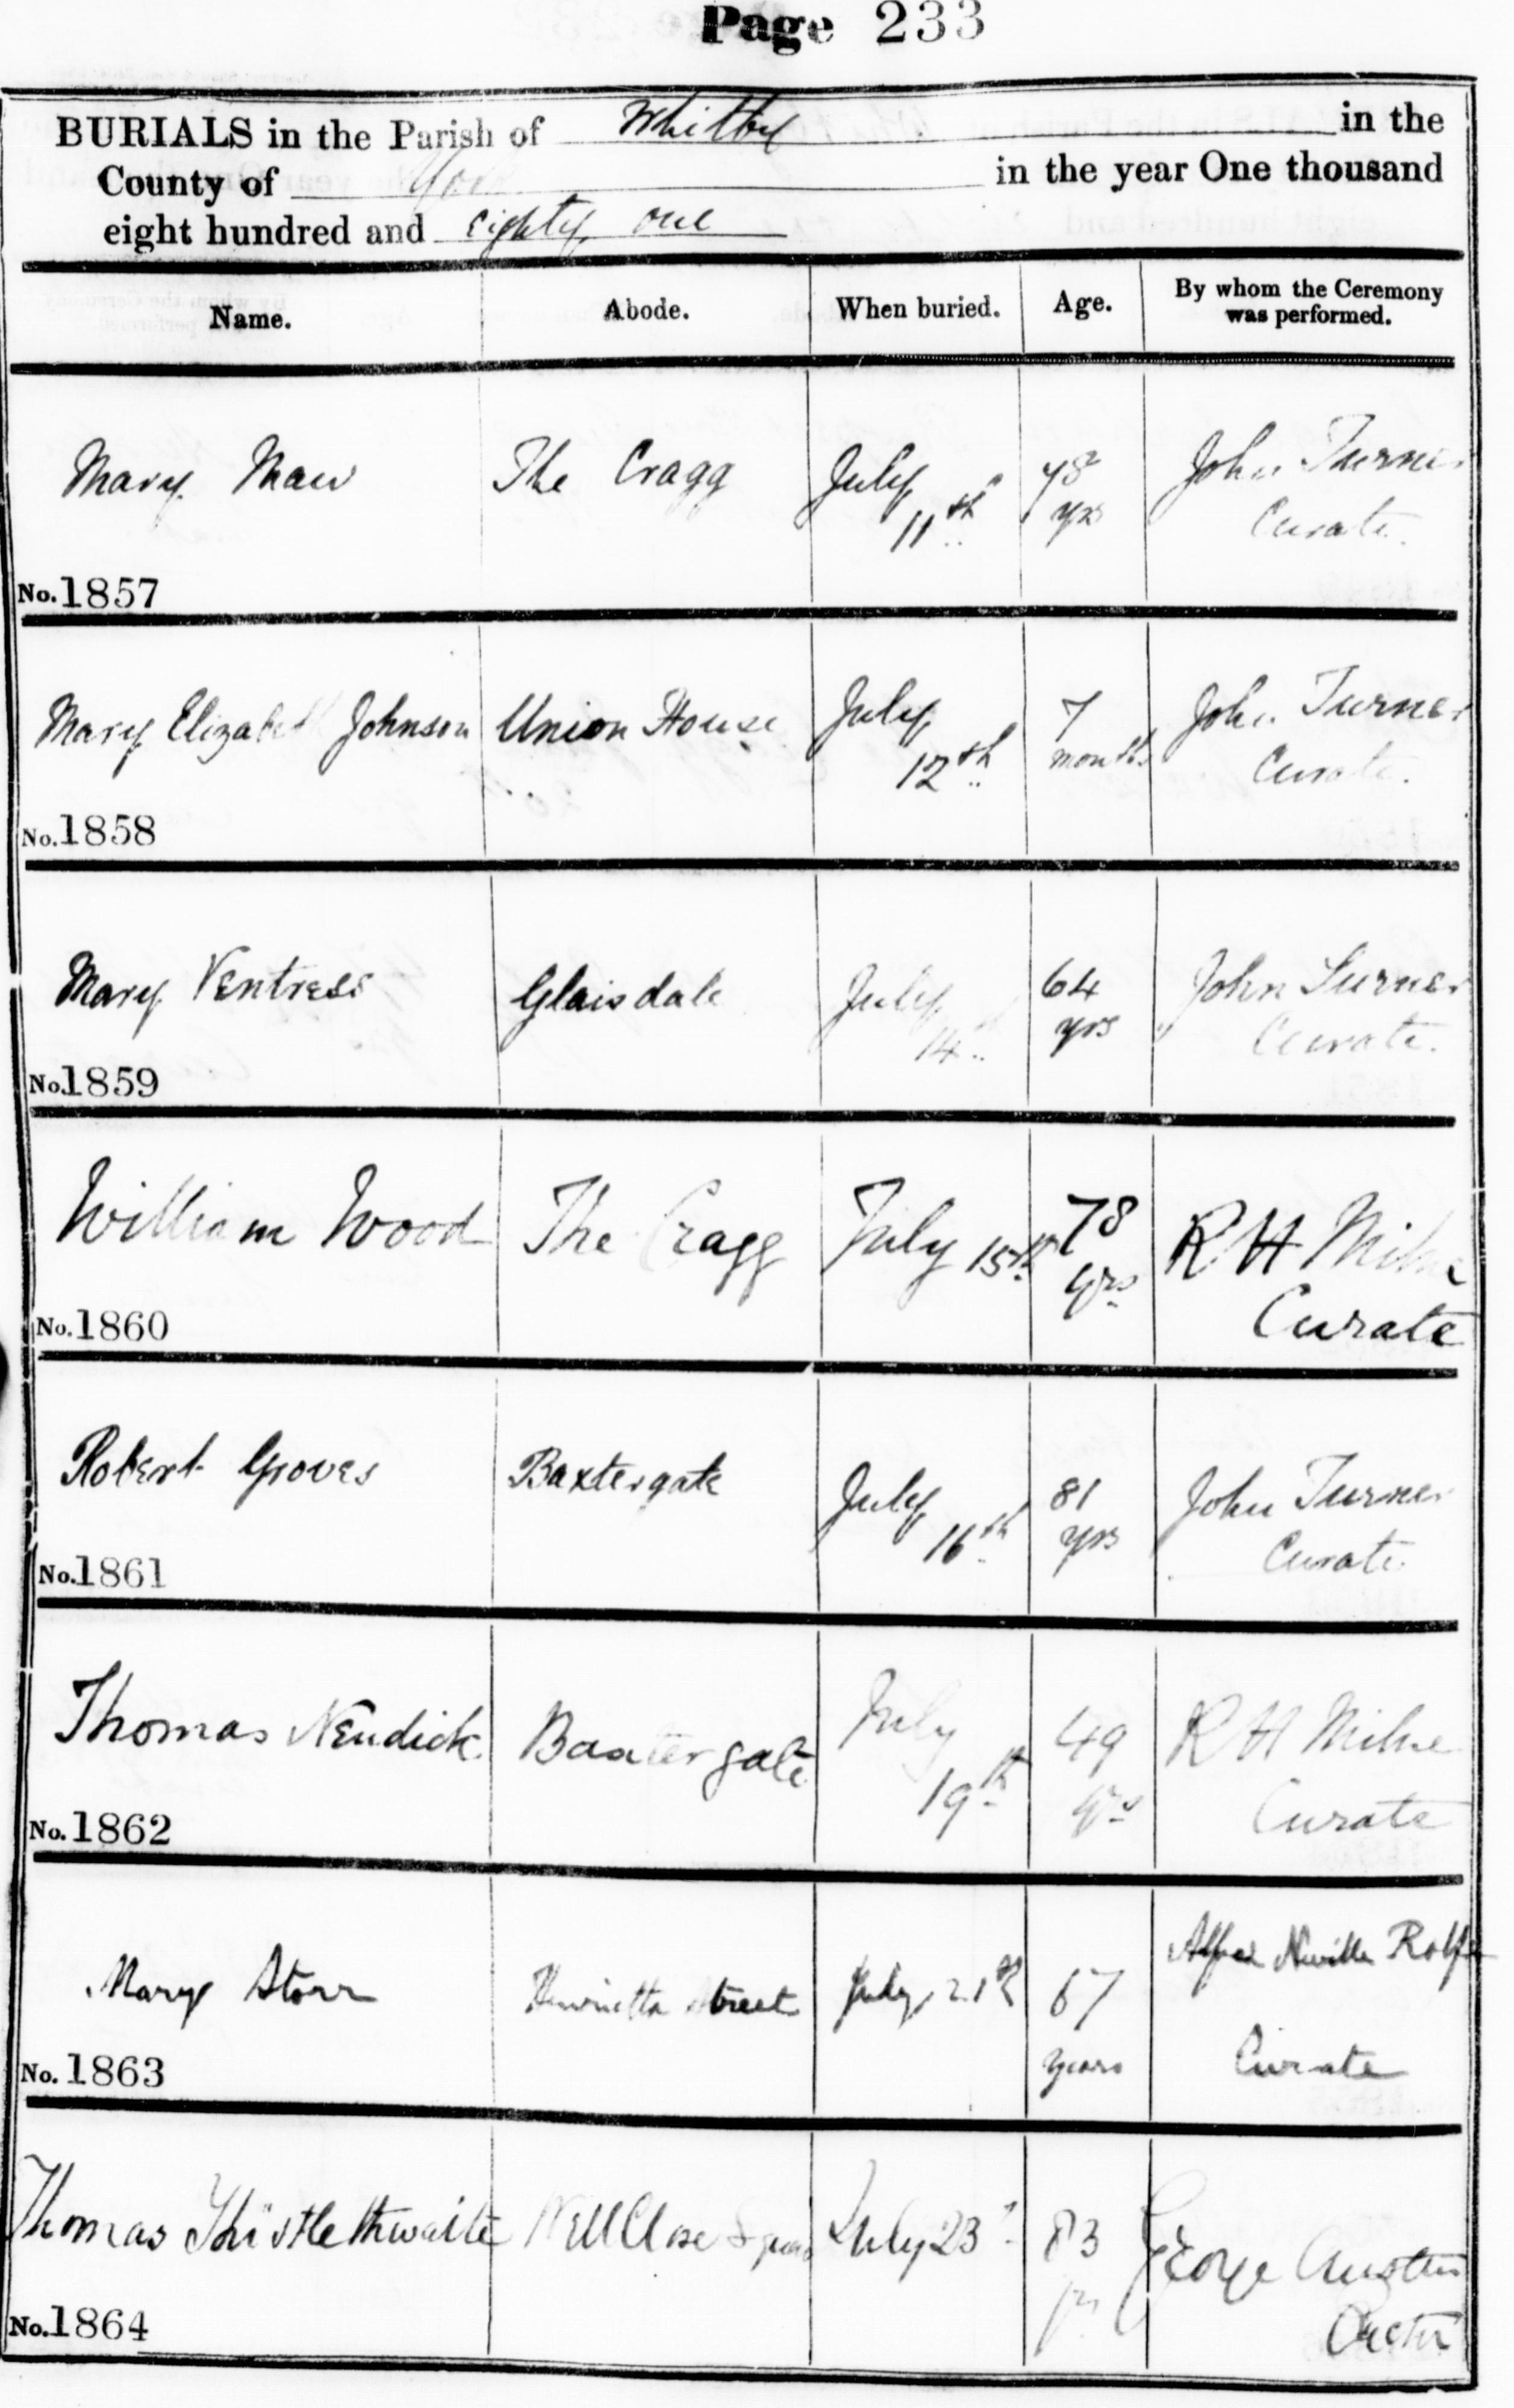 Page 233
BURIALS in the Parish of Whitby in the
County of York in the year One thousand
eight hundred and eighty one
Name. Abode. When buried. Age. By whom the Ceremony was performed.
Mary Maw The Cragg July 11th 78 yrs John Turner Curate.
No. 1857
Mary Elizabeth Johnson Union House July 12th 7 months John Turner Curate.
No. 1858
Mary Ventress Glaisdale July 14th 64 yrs John Turner Curate.
No. 1859
William Wood The Cragg July 15th 78 yrs R H Milne Curate
No. 1860
Robert Groves Baxtergate July 16th 81 yrs John Turner Curate.
No. 1861
Thomas Nendick Baxtergate July 19th 49 yrs R H Milne Curate
No. 1862
Mary Storr Henrietta Street July 21st 67 years Alfred Neville Rolfe Curate
No. 1863
Thomas Thistlethwaite Well Close Square July 23 83 George Austen Rector
No. 1864